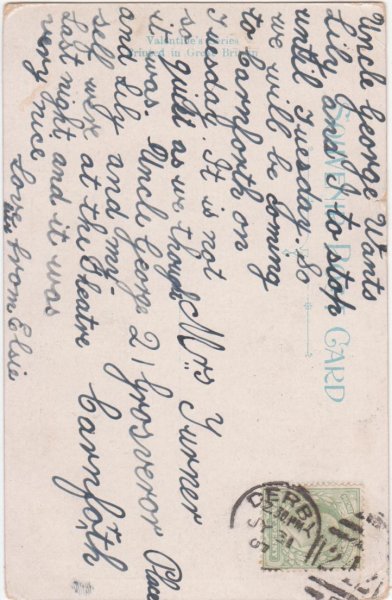 Valentine's Series
Printed in Great Britain
SOUVENIR POST CARD
Uncle George Wants
Lily and I to stop
until Tuesday. So
we will be coming
to Carnforth on
Tuesday. It is not
so quiet as we thought
it was. Uncle George
and Lily and my-
self were at the Theatre
last night, and it was
very nice
Love from Elsie
Mrs Turner
21 Grosvenor Place
Carnforth
DERBY